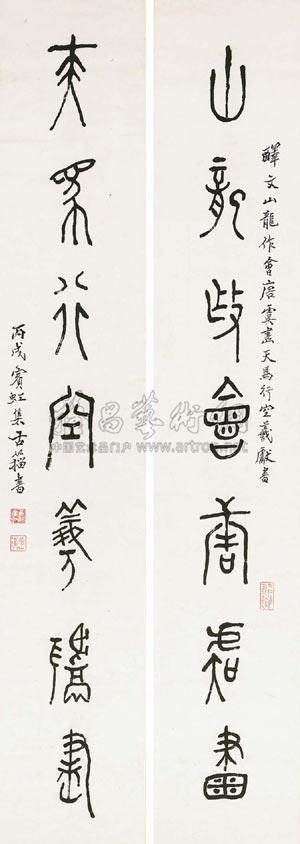 山龍作會唐虞畫
釋文山龍作會唐虞畫天馬行空羲獻書
天馬行空羲獻書
丙戌賓虹集古籀書
中国艺术品门户 www.artron.net